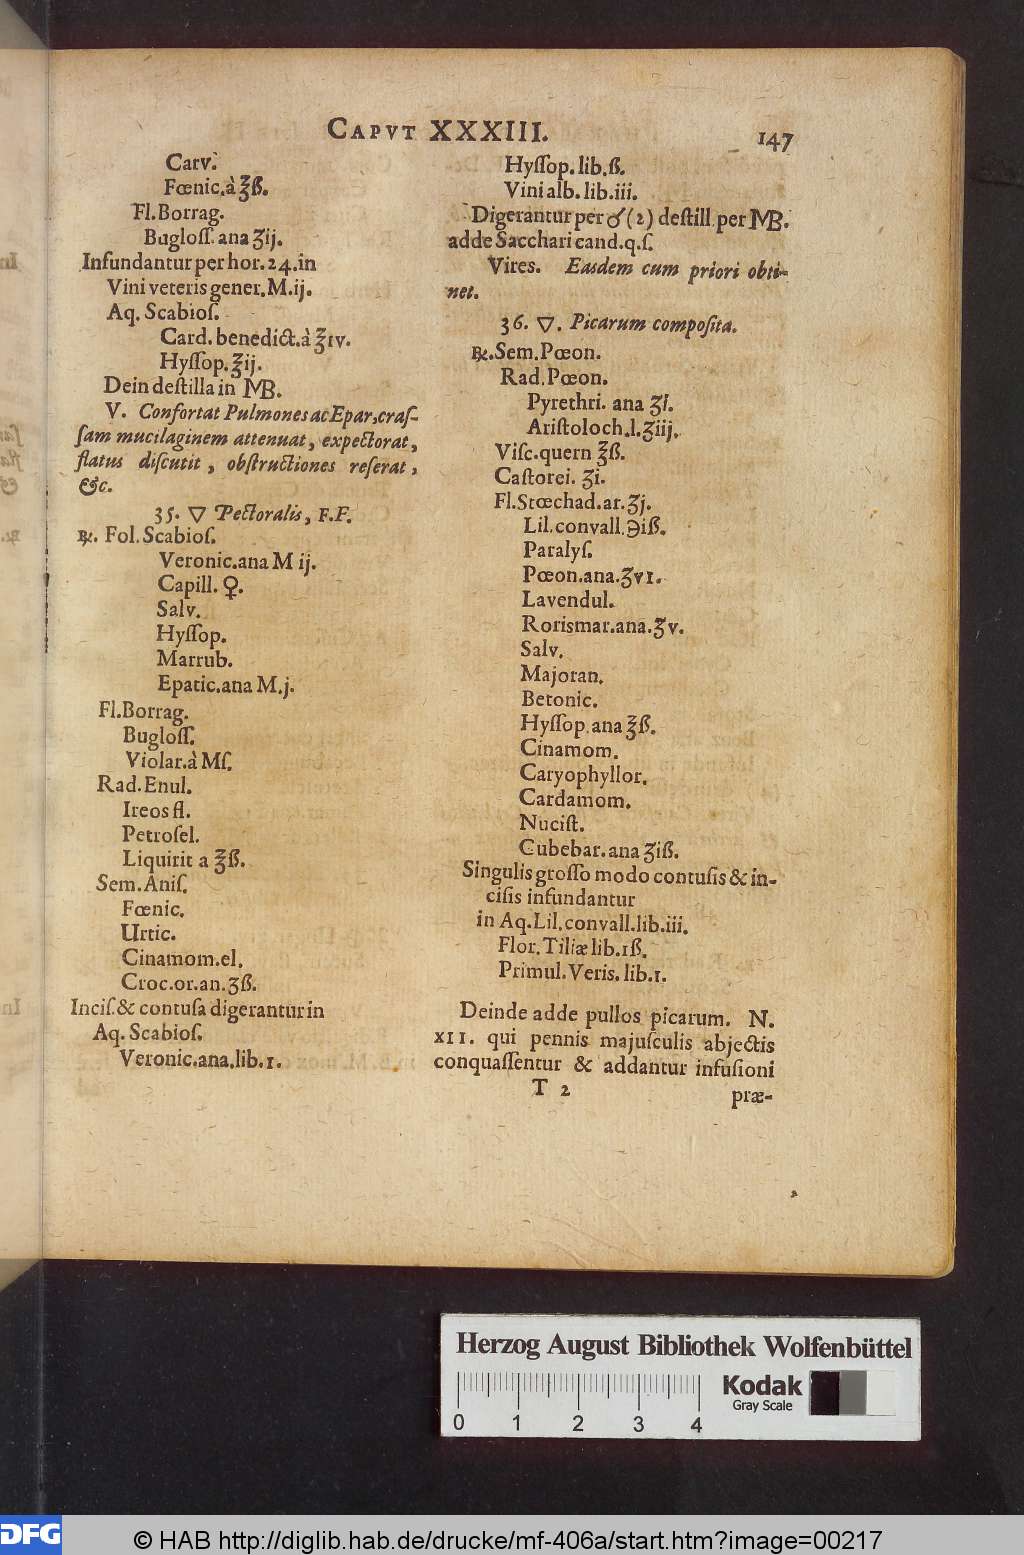 CAPVT XXXIII. 147
Carv.
Fœnic. à ℥ß.
Fl. Borrag.
Bugloſſ. ana ʒij.
Infundantur per hor. 24. in
Vini veteris gener. M. ij.
Aq. Scabioſ.
Card. benedict. à ℥ıv.
Hyſſop. ℥ij.
Dein deſtilla in MB.
V. Confortat Pulmones ac Epar, craſ-
ſam mucilaginem attenuat, expectorat,
flatus diſcutit, obſtructiones reſerat,
&c.
35. ▽ Pectoralis, F.F.
℞. Fol. Scabioſ.
Veronic. ana M ij.
Capill. ♀.
Salv.
Hyſſop.
Marrub.
Epatic. ana M. j.
Fl. Borrag.
Bugloſſ.
Violar. à Mſ.
Rad. Enul.
Ireos fl.
Petroſel.
Liquirit a ℥ß.
Sem. Aniſ.
Fœnic.
Urtic.
Cinamom. el.
Croc. or. an. ʒß.
Inciſ. & contuſa digerantur in
Aq. Scabioſ.
Veronic. ana. lib. 1.
Hyſſop. lib. ß.
Vini alb. lib. iii.
Digerantur per ♂ (2) deſtill. per MB.
adde Sacchari cand. q. ſ.
Vires. Easdem cum priori obti-
net.
36. ▽. Picarum compoſita.
℞. Sem. Pœon.
Rad. Pœon.
Pyrethri. ana ʒſ.
Ariſtoloch. l. ʒiij.
Viſc. quern ℥ß.
Caſtorei. ʒi.
Fl. Stœchad. ar. ʒj.
Lil. convall. ℈iß.
Paralyſ.
Pœon. ana. ʒvı.
Lavendul.
Rorismar. ana. ʒv.
Salv.
Majoran.
Betonic.
Hyſſop. ana ℥ß.
Cinamom.
Caryophyllor.
Cardamom.
Nuciſt.
Cubebar. ana ʒiß.
Singulis groſſo modo contuſis & in-
ciſis infundantur
in Aq. Lil. convall. lib. iii.
Flor. Tiliæ lib. 1ß.
Primul. Veris. lib. 1.
Deinde adde pullos picarum. N.
xıı. qui pennis majuſculis abjectis
conquaſſentur & addantur infuſioni
T 2 præ-
Herzog August Bibliothek Wolfenbüttel
Kodak
Gray Scale
0 1 2 3 4
DFG © HAB http://diglib.hab.de/drucke/mf-406a/start.htm?image=00217